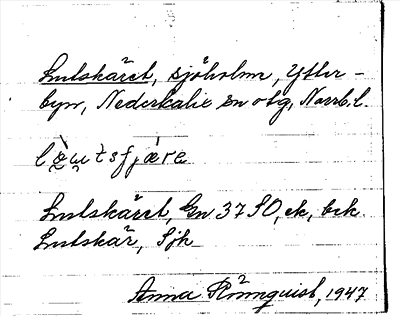 Lutskäret, sjöholme, Ytter-
byn, Nederkalix sn otg, Norrb. l.
lutskäret, Gn 37 SO, ek, bek.
Lutskär, Sjk
Anna Rönnquist, 1947